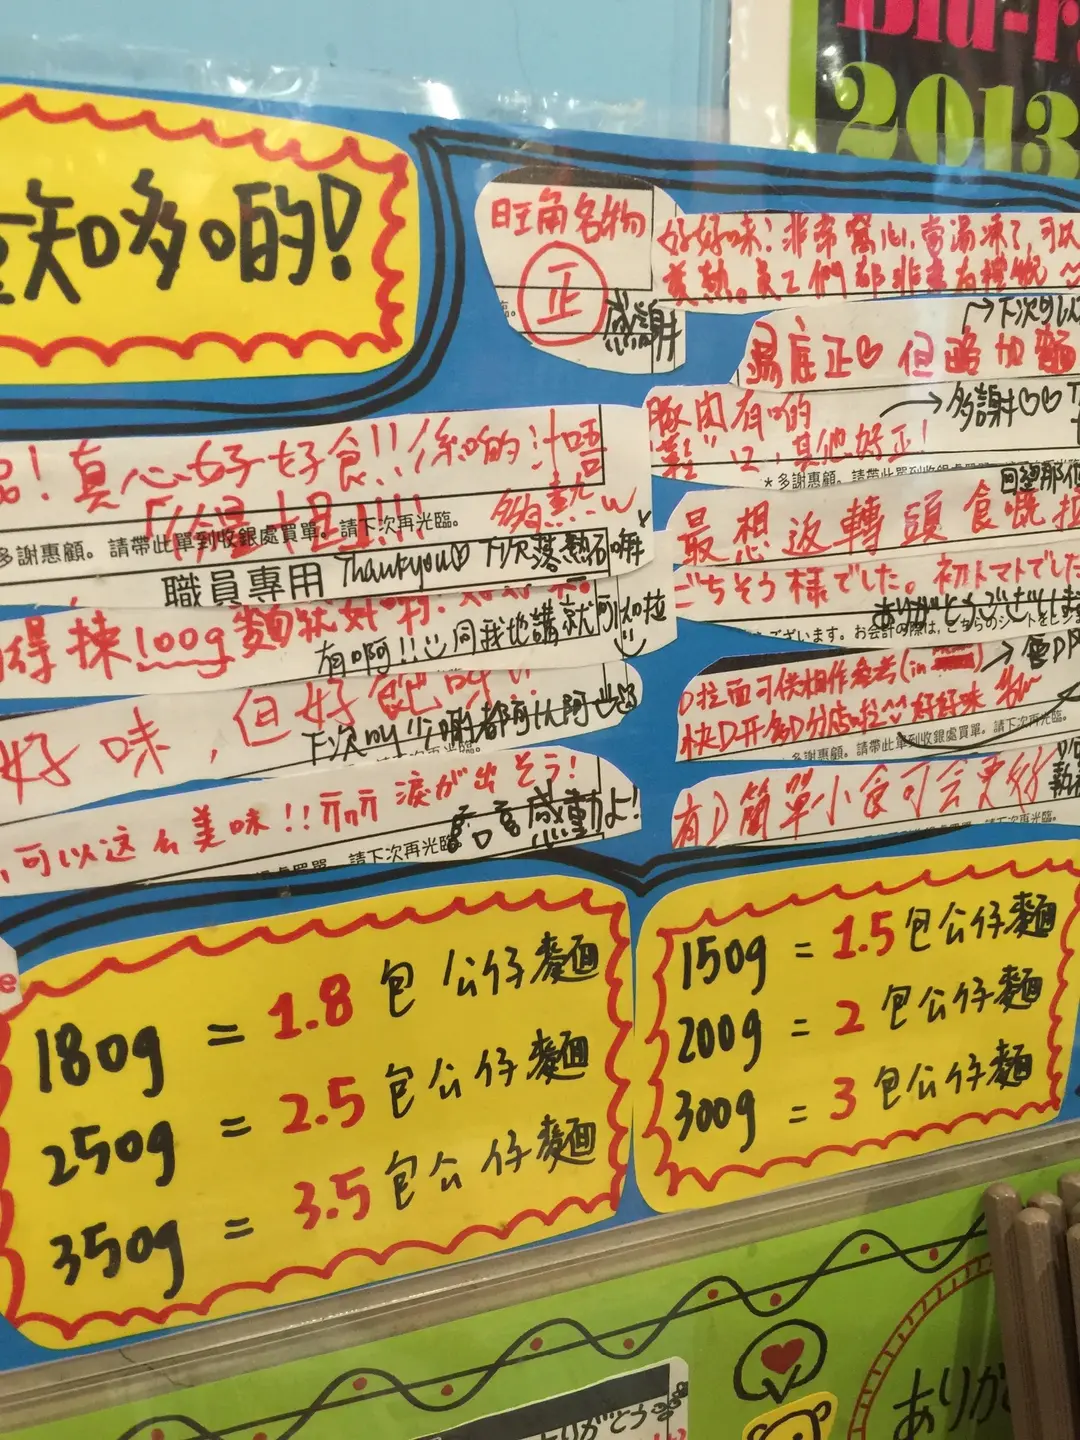 Blu-r
2013
知多啲!
旺角名物
正
感謝
好好味!非常窩心,當湯凍了,可以
煲熱。員工們都非常有禮貌
湯底正♡但追加麵
下次可以
豚肉有啲
多謝♡♡
其他好正!
*多謝惠顧。請帶此單到收銀處
真心好好食!!係啲汁唔
多謝惠顧。請帶此單到收銀處買單。請下次再光臨。
職員專用
Thankyou♡下次落熱石
最想返轉頭食嘅拉
ごちそう様でした。初トマトでした
ありがとうございます
ございます。お会計の際は、こちらのシートをレジ
得揀100g
有啊!!同我地講就可以拉
好味,但好
下次叫少啲都可以
D拉面可供相作參考(in
快D开多D分店啦 好好味
多謝惠顧。請帶此單到收銀處買單。請下次再光臨。
,可以这么美味!!涙が出そう!
感動よ!
請下次再光臨。
有D簡單小食可会更好
請下次再光臨。
180g = 1.8 包公仔麵
250g = 2.5 包公仔麵
350g = 3.5 包公仔麵
150g = 1.5 包公仔麵
200g = 2 包公仔麵
300g = 3 包公仔麵
ありが
ありがとう